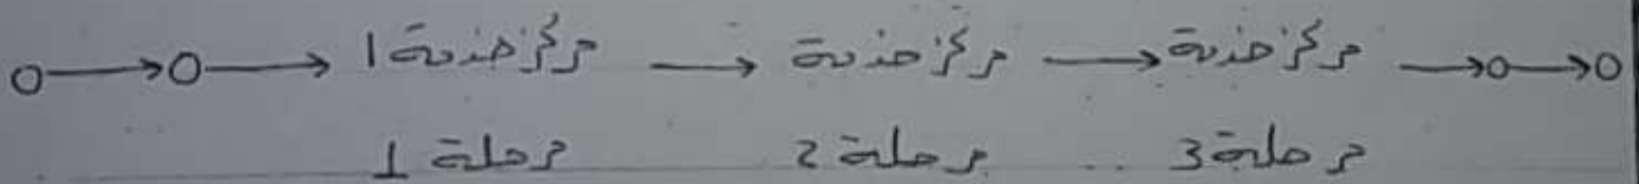 مركز خدمة 1 مركز خدمة مركز خدمة
مرحلة 1 مرحلة 2 مرحلة 3